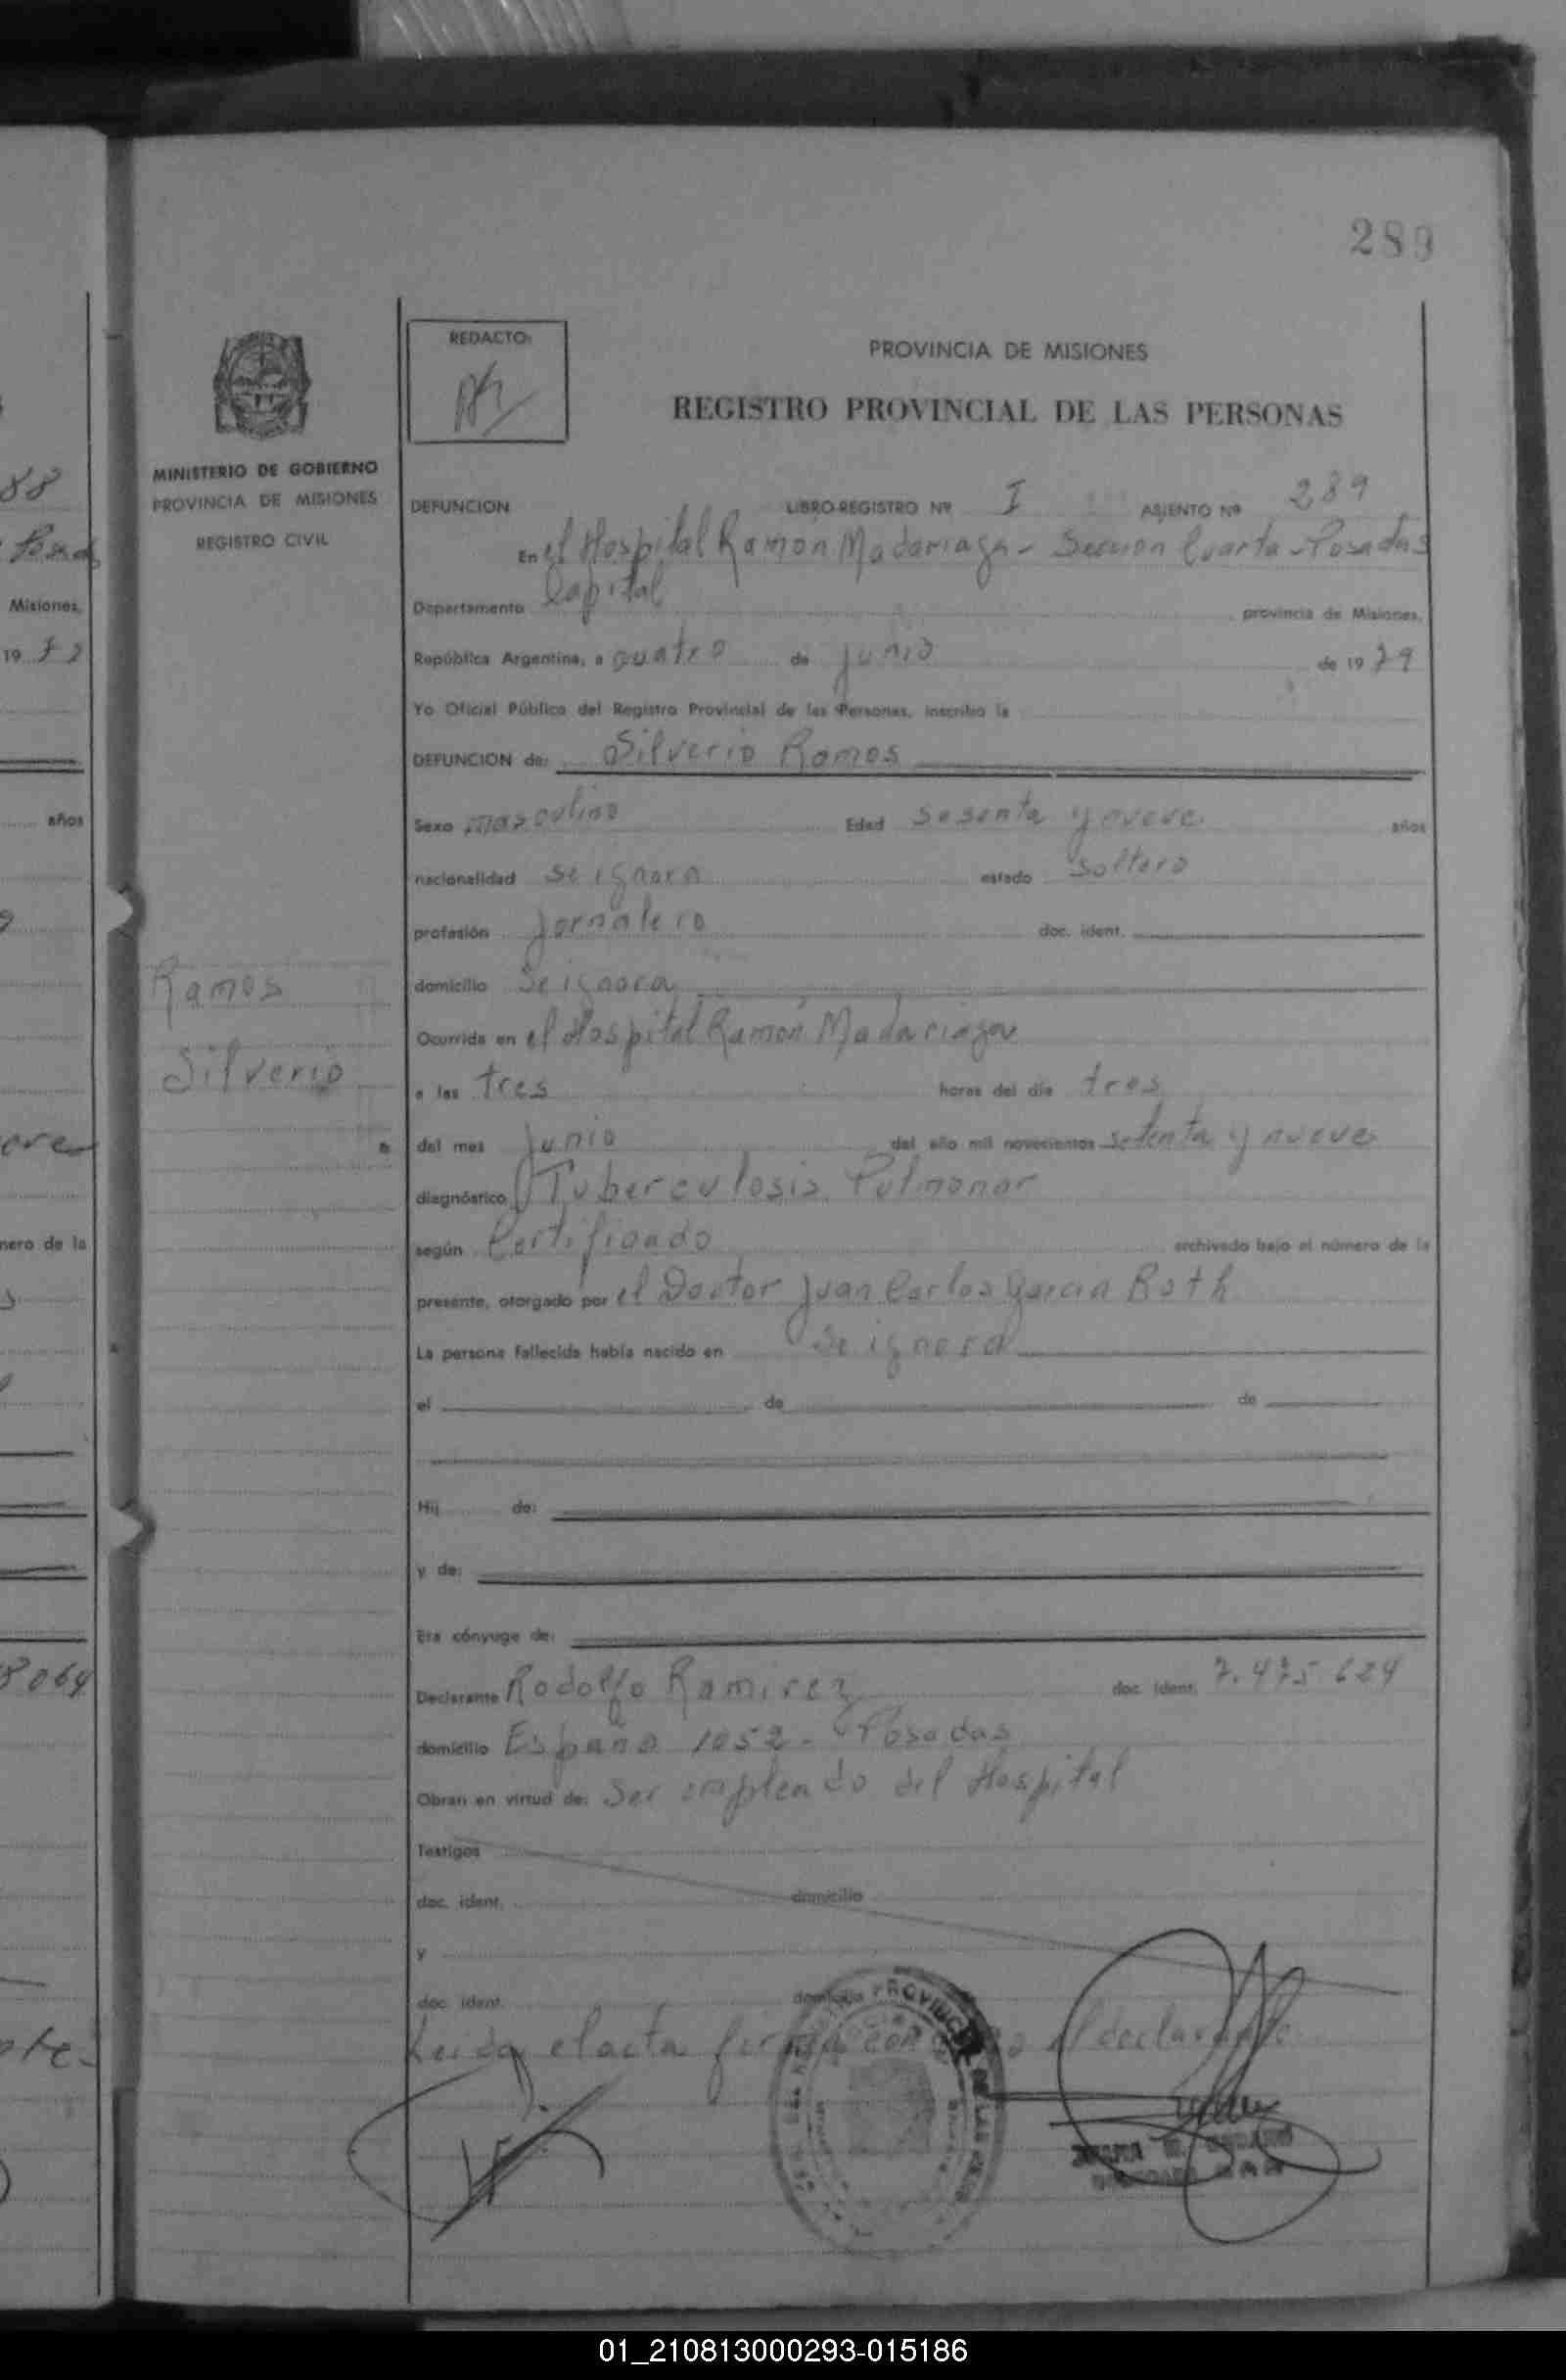 289
REDACTO:
PROVINCIA DE MISIONES
REGISTRO PROVINCIAL DE LAS PERSONAS
MINISTERIO DE GOBIERNO
PROVINCIA DE MISIONES
REGISTRO CIVIL
DEFUNCION LIBRO-REGISTRO Nº I ASIENTO Nº 289
En el Hospital Ramon Madariaga - Seccion Cuarta - Posadas
Departamento Capital provincia de Misiones,
República Argentina, a cuatro de junio de 1979
Yo Oficial Público del Registro Provincial de las Personas, inscribo la
DEFUNCION de: Silverio Ramos
Sexo masculino Edad sesenta y nueve años
nacionalidad se ignora estado soltero
profesión Jornalero doc. ident.
Ramos
domicilio Se ignora
Ocurrida en el Hospital Ramón Madariaga
Silverio
a las tres horas del día tres
del mes Junio del año mil novecientos setenta y nueve
diagnóstico Tuberculosis Pulmonar
según Certificado archivado bajo el número de la
presente, otorgado por el Doctor Juan Carlos Garcia Roth
La persona fallecida había nacido en Se ignora
el de de
Hij de:
y de:
Era cónyuge de:
Declarante Rodolfo Ramirez doc. ident. 7.475.624
domicilio España 1052 - Posadas
Obran en virtud de: Ser empleado del Hospital
Testigos
doc. ident. domicilio
y
doc. ident. domicilio
Leida el acta firma con el declarante
88
Misiones,
1972
años
mero de la
8064
01_210813000293-015186